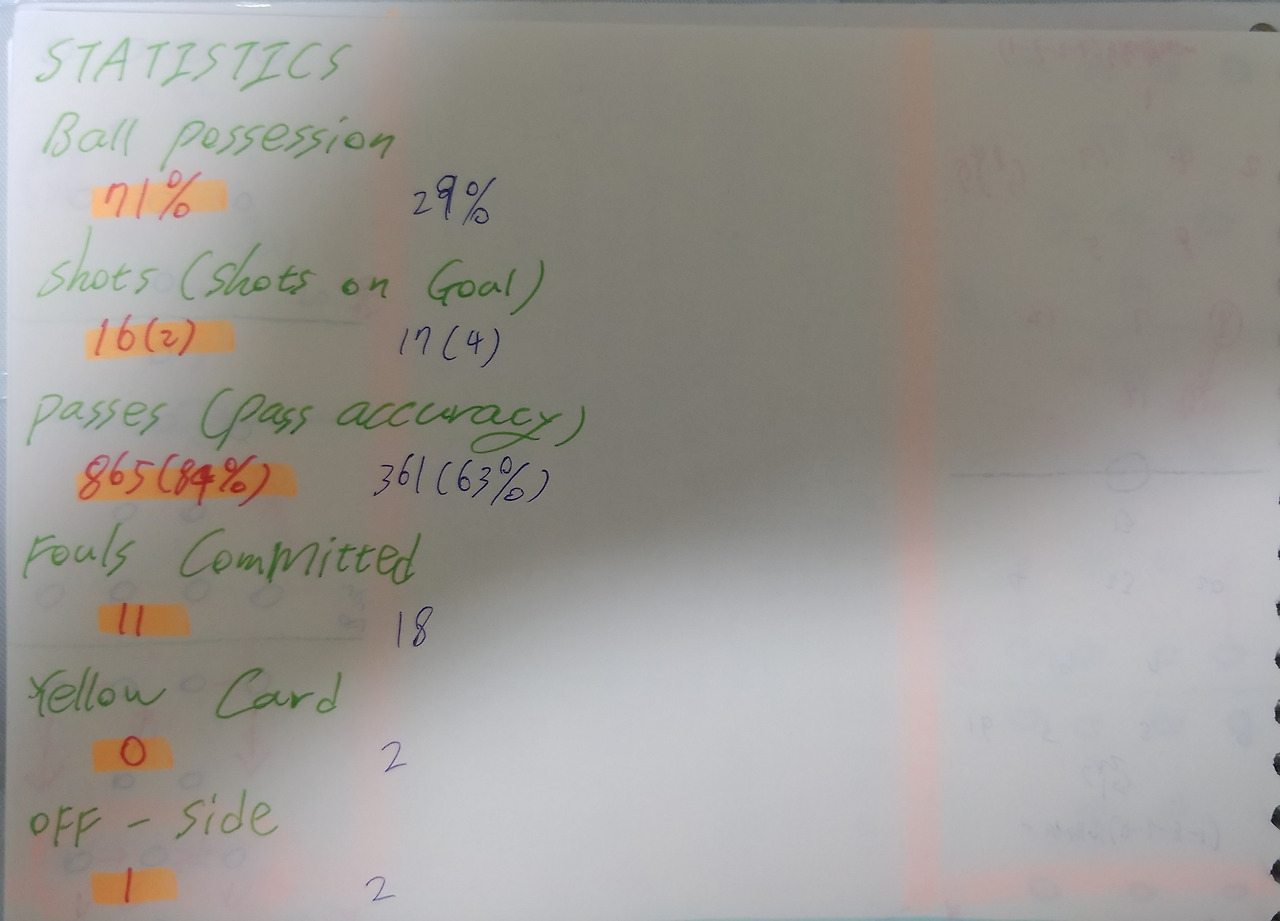 STATISTICS
Ball possession
71% 29%
shots (shots on Goal)
16(2) 17(4)
passes (pass accuracy)
865(84%) 361(63%)
Fouls Committed
11 18
Yellow Card
0 2
OFF - side
1 2